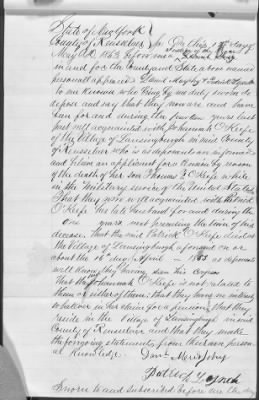 State of New York
County of Rensselaer } On this 18th day of
May A.D. 1863 before me
in and for the County and State above named
personally appeared Daniel Murphy & Patrick Lynch
to me known who being by me duly sworn do
depose and say that they now are and have
been for and during the years last
past well acquainted with Johannah O'Keefe
of the Village of Lansingburgh in said County
of Rensselaer who is as deponents are informed
and believe an applicant for a Pension by reason
of the death of her son Thomas F. O'Keefe while
in the military service of the United States
That they were well acquainted with Patrick
O'Keefe her late husband for and during the
years next preceding the time of his
decease. That the said Patrick O'Keefe died at
the Village of Lansingburgh aforesaid on or
about the 16th day of April 1855 as deponents
well know they having seen his corpse
That the Johannah O'Keefe is not related to
them or either of them: that they have no interest
whatever in her claim for a pension, that they
reside in the Village of Lansingburgh in said
County of Rensselaer and that they make
the foregoing statements from their own person
al Knowledge.
Danl Murphy
Patrick Lynch
Sworn to and subscribed before me the day